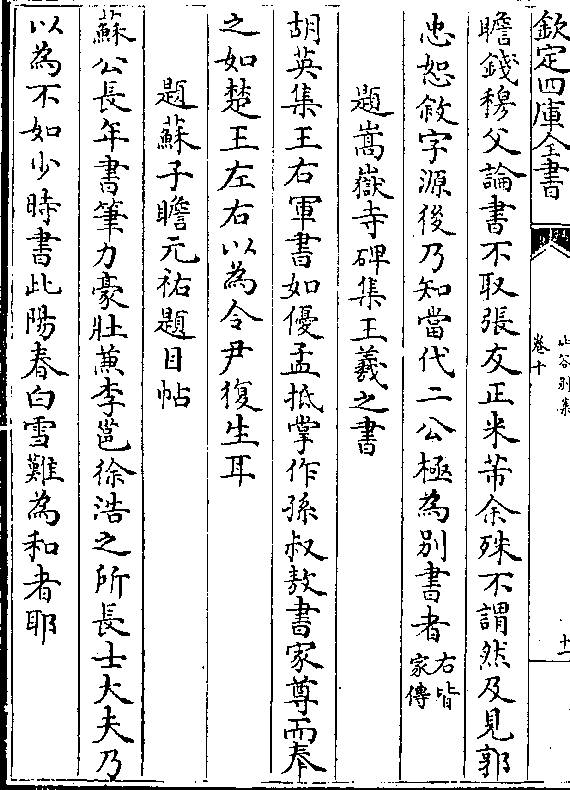 欽定四庫全書
山谷別集
卷十
十一
瞻錢穆父論書不取張友正米芾余殊不謂然及見郭
忠恕敘字源後乃知當代二公極為別書者右皆家傳
題嵩嶽寺碑集王羲之書
胡英集王右軍書如優孟抵掌作孫叔敖書家尊而奉
之如楚王左右以為令尹復生耳
題蘇子瞻元祐題目帖
蘇公長年書筆力豪壯蕙李邕徐浩之所長士大夫乃
以為不如少時書此陽春白雪難為和者耶